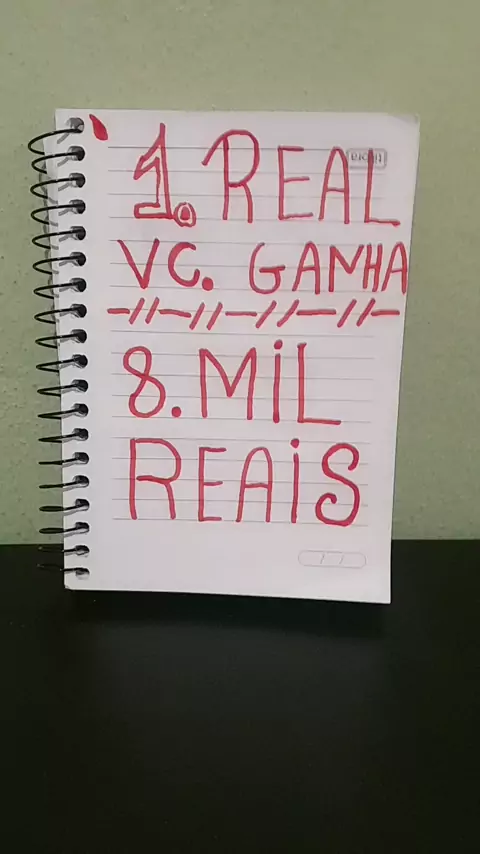 1. REAL
tilibra
VC. GANHA
8. MiL
REAiS